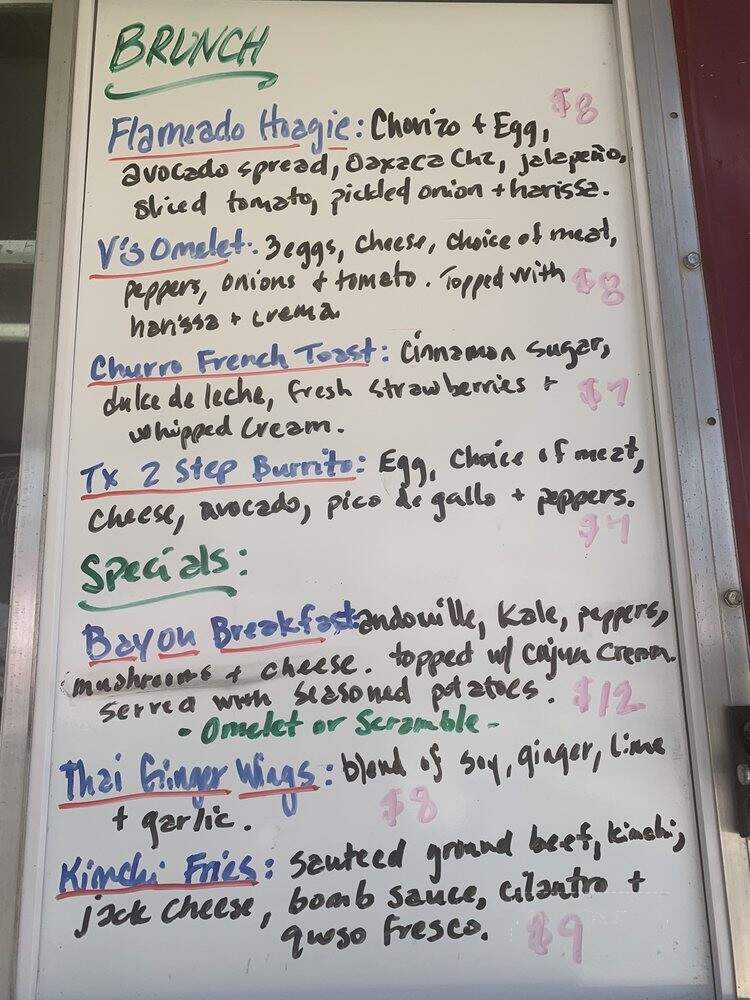 BRUNCH
$8
Flameado Hoagie: Chorizo + Egg,
avocado spread, Oaxaca Chz, jalapeño,
sliced tomato, pickled onion + harissa.
V's Omelet: 3 eggs, cheese, choice of meat,
peppers, onions + tomato. Topped with $8
harissa + crema
Churro French Toast: Cinnamon sugar,
dulce de leche, fresh strawberries + $7
whipped cream.
Tx 2 Step Burrito: Egg, choice of meat,
cheese, avocado, pico de gallo + peppers.
$7
Specials:
Bayou Breakfast: andouille, Kale, peppers,
mushrooms + cheese. topped w/ cajun cream.
served with seasoned potatoes. $12
- Omelet or Scramble -
Thai Ginger Wings: blend of soy, ginger, lime
+ garlic. $8
Kimchi Fries: sauteed ground beef, kimchi,
jack cheese, bomb sauce, cilantro +
queso fresco. $9